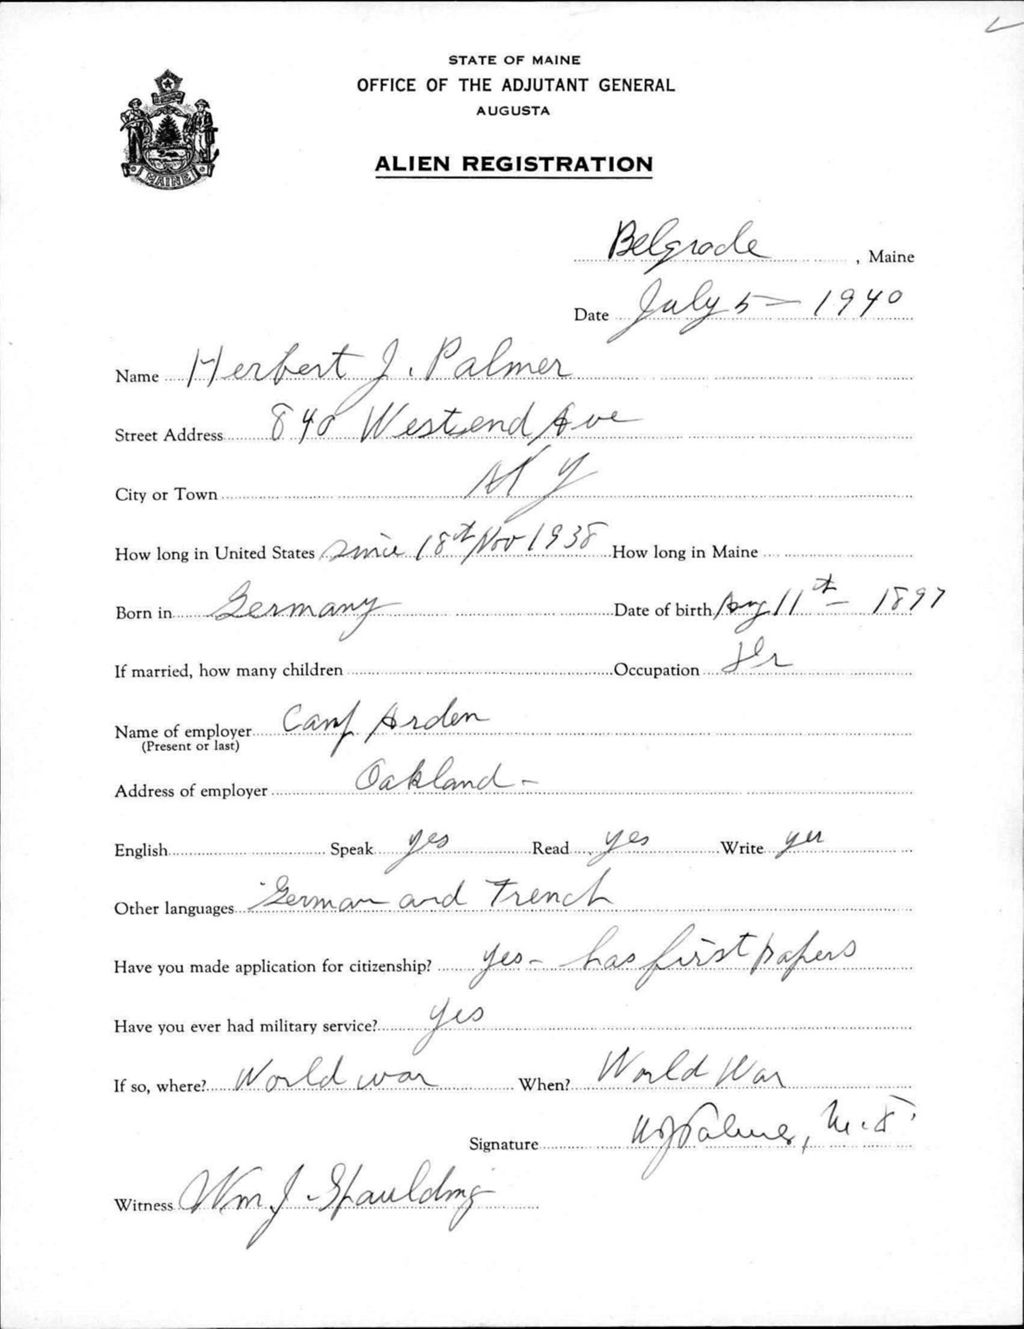 STATE OF MAINE
OFFICE OF THE ADJUTANT GENERAL
AUGUSTA
ALIEN REGISTRATION
MAINE
Belgrade, Maine
Date July 5 - 1940
Name Herbert J. Palmer
Street Address 840 Westend Ave
City or Town N Y
How long in United States since 18th Nov 1938 How long in Maine
Born in Germany Date of birth Aug 11th - 1897
If married, how many children Occupation Dr
Name of employer Camp Arden
(Present or last)
Address of employer Oakland -
English Speak yes Read yes Write yes
Other languages German and French
Have you made application for citizenship? yes - has first papers
Have you ever had military service? yes
If so, where? World war When? World War
Signature HJPalmer, M.D.
Witness Wm J. Spaulding